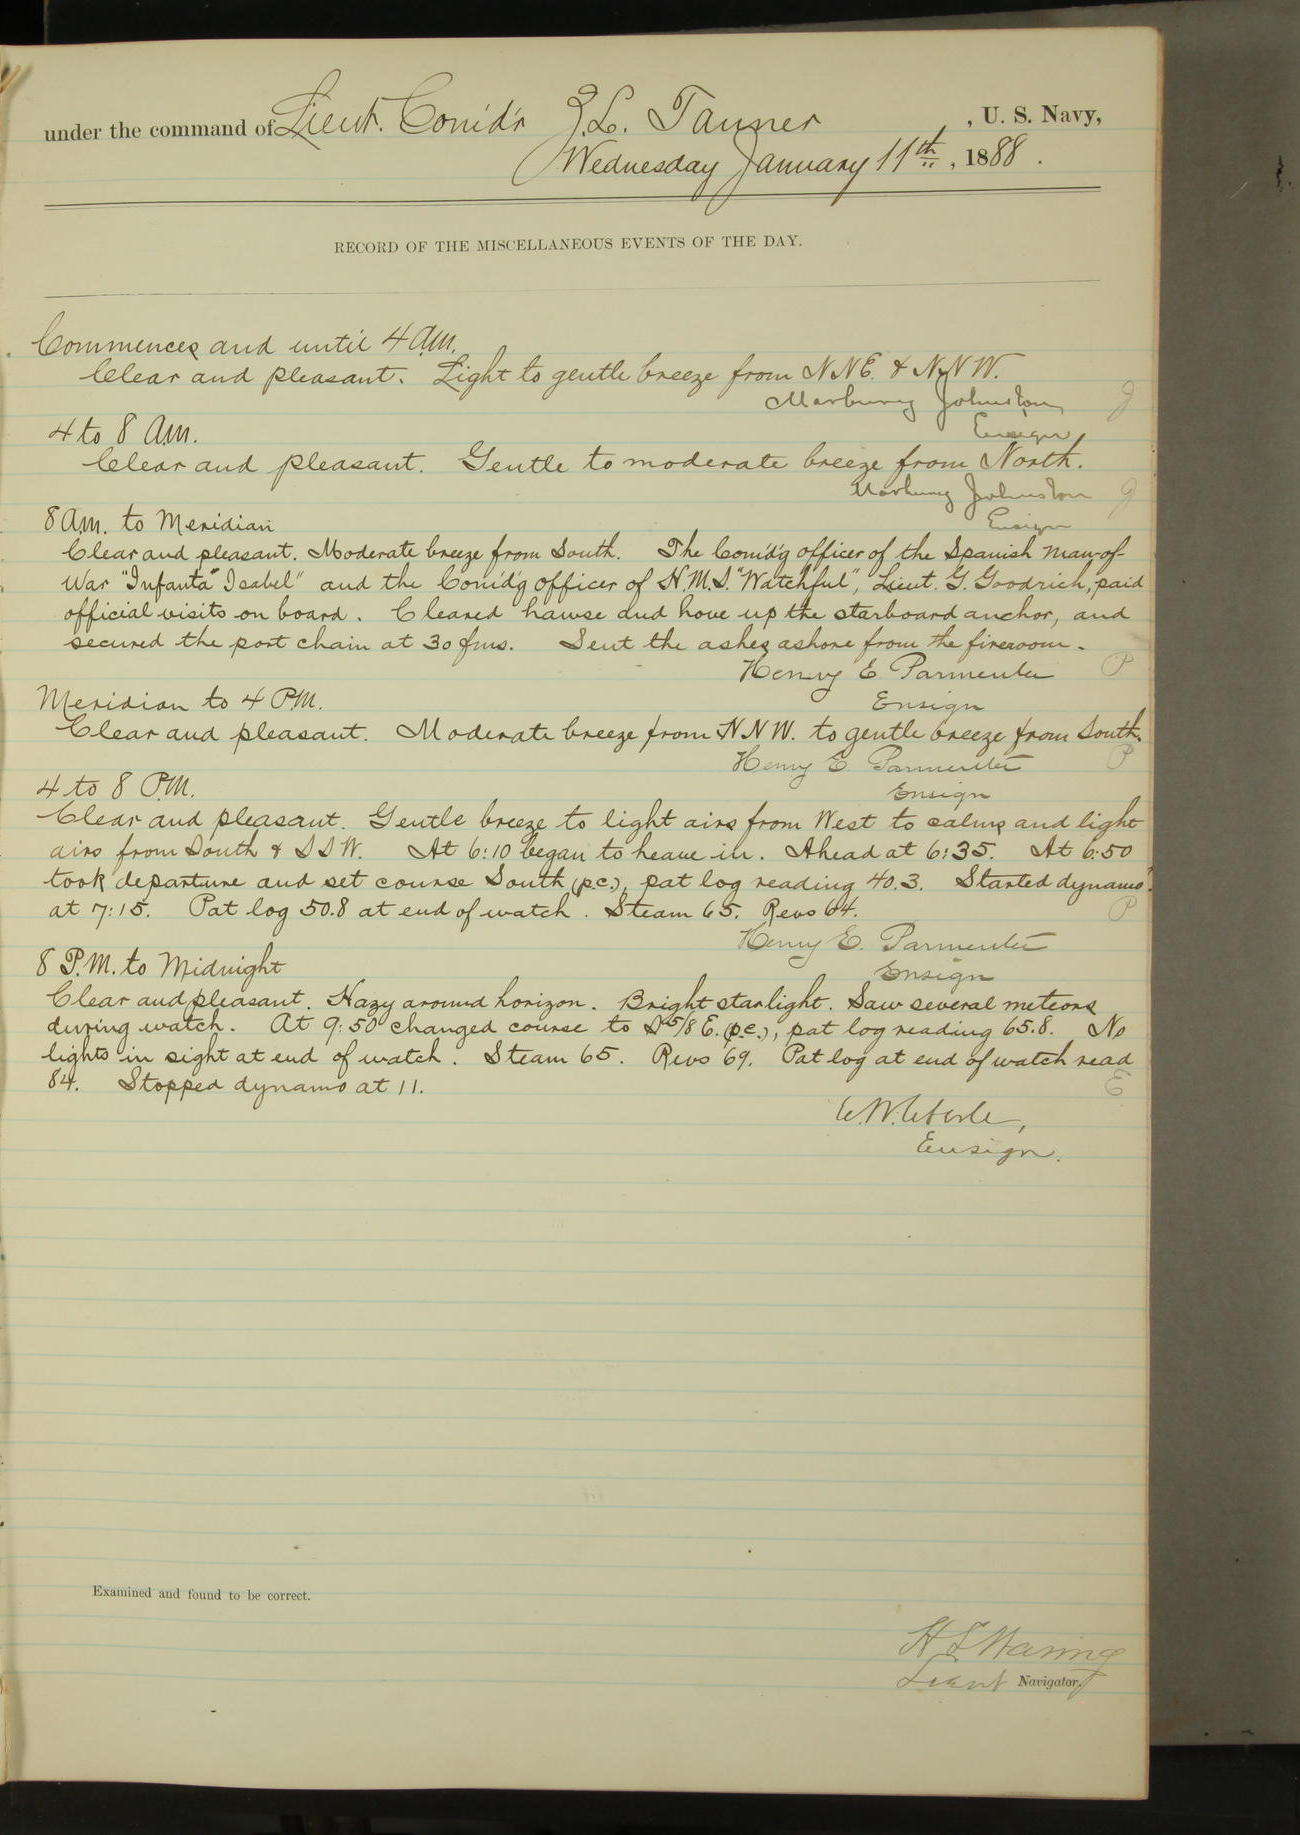 under the command of Lieut. Com'd'r Z.L. Tanner, U. S. Navy,
Wednesday January 11th, 1888.
RECORD OF THE MISCELLANEOUS EVENTS OF THE DAY.
Commences and until 4 A.M.
Clear and pleasant. Light to gentle breeze from N N E. & N N W.
Marbury Johnston J
Ensign
4 to 8 A.M.
Clear and pleasant. Gentle to moderate breeze from North.
Marbury Johnston J
Ensign
8 A.M. to Meridian
Clear and pleasant. Moderate breeze from South. The Com'd'g officer of the Spanish Man-of-
War "Infanta Isabel" and the Com'd'g officer of H.M.S. "Watchful", Lieut. G. Goodrich, paid
official visits on board. Cleared hawse and hove up the starboard anchor, and
secured the port chain at 30 fms. Sent the ashes ashore from the fireroom.
Henry E. Parmenter P
Ensign
Meridian to 4 P.M.
Clear and pleasant. Moderate breeze from N N W. to gentle breeze from South.
Henry E. Parmenter P
Ensign
4 to 8 P.M.
Clear and pleasant. Gentle breeze to light airs from West to calms and light
airs from South & S S W. At 6:10 began to heave in. Ahead at 6:35. At 6:50
took departure and set course South (p.c.), pat log reading 40.3. Started dynamo
at 7:15. Pat log 50.8 at end of watch. Steam 65. Revs 64. P
Henry E. Parmenter
Ensign
8 P.M. to Midnight
Clear and pleasant. Hazy around horizon. Bright starlight. Saw several meteors
during watch. At 9:50 changed course to S 5/8 E. (p.c.), pat log reading 65.8. No
lights in sight at end of watch. Steam 65. Revs 69. Pat log at end of watch read
84. Stopped dynamo at 11. E
E.W. Eberle,
Ensign.
Examined and found to be correct.
H S Waring
Lieut Navigator.